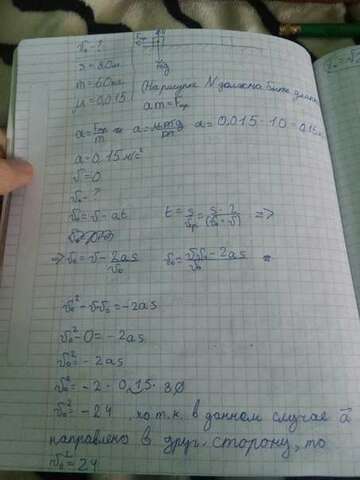 v₀ - ?
S = 80м
m = 60кг
μ = 0,015
mg
(На рисунке N должна быть длин
am = Fтр
a = Fтр/m => a = μmg/m a = 0,015 · 10 = 0,15м
a = 0,15 м/с²
v = 0
v₀ - ?
v₀ = v - at t = S/vср = S · 2/(v₀ - v) =>
=> v₀ = v - 2as/v₀ v₀ = v v₀ - 2as/v₀
v₀² - v v₀ = -2as
v₀² - 0 = -2as
v₀² = -2as
v₀² = -2 · 0,15 · 80
v₀² = -24, но т.к. в данном случае a⃗
направлено в друг. сторону, то
v₀² = 24